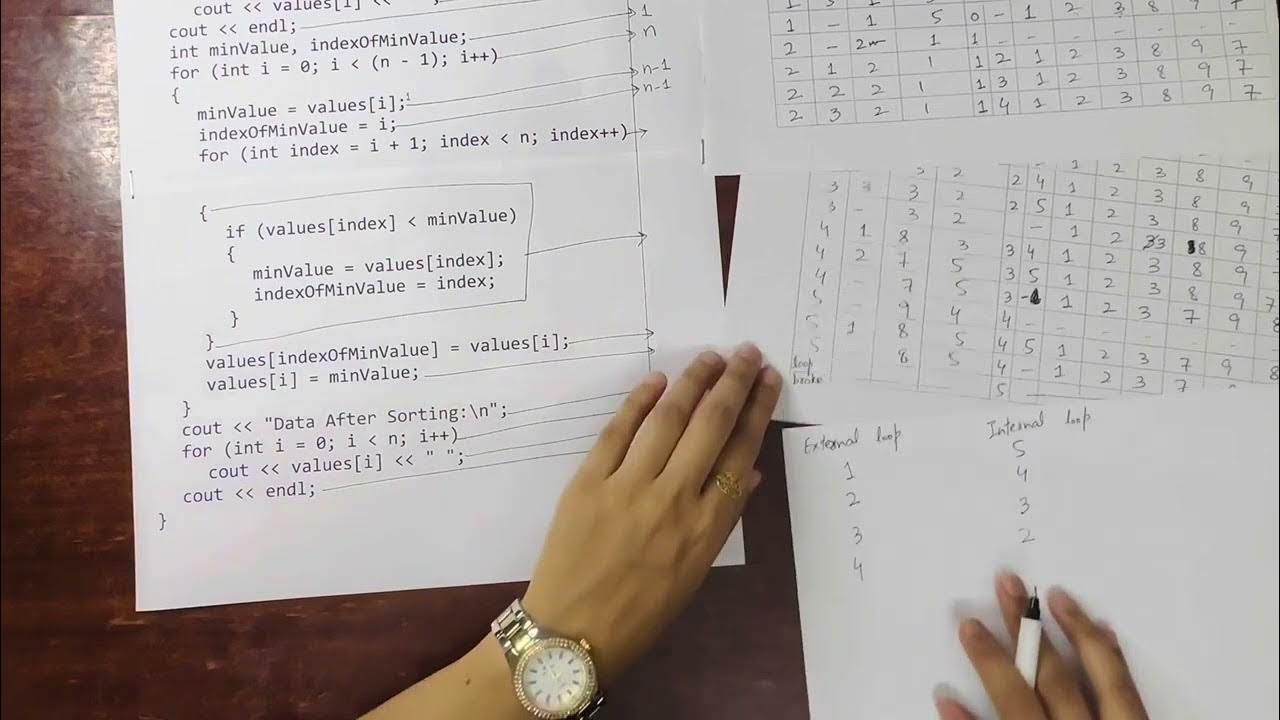 cout << values[i] <<
cout << endl;
int minValue, indexOfMinValue;
for (int i = 0; i < (n - 1); i++)
{
minValue = values[i];
indexOfMinValue = i;
for (int index = i + 1; index < n; index++)
{
if (values[index] < minValue)
{
minValue = values[index];
indexOfMinValue = index;
}
}
values[indexOfMinValue] = values[i];
values[i] = minValue;
}
cout << "Data After Sorting:\n";
for (int i = 0; i < n; i++)
cout << values[i] << " ";
cout << endl;
}
1
n
n-1
n-1
1 - 1 5 0 - 1 2 3 8 9 7
2 - 2 1 1 - - - - - -
2 1 2 1 1 2 1 2 3 8 9 7
2 2 2 1 1 3 1 2 3 8 9 7
2 3 2 1 1 4 1 2 3 8 9 7
3 3 3 2 2 4 1 2 3 8 9
3 - 3 2 2 5 1 2 3 8 9
4 1 8 3 3 4 1 2 3 8 9
4 2 7 5 3 5 1 2 3 8 9
4 - 7 5 3 - 1 2 3 7 9 8
5 - 9 4 4 - - - - - -
5 1 8 5 4 5 1 2 3 7 9 8
5 8 5 4 - 1 2 3 7
loop
5
External loop Internal loop
1 5
2 4
3 3
4 2